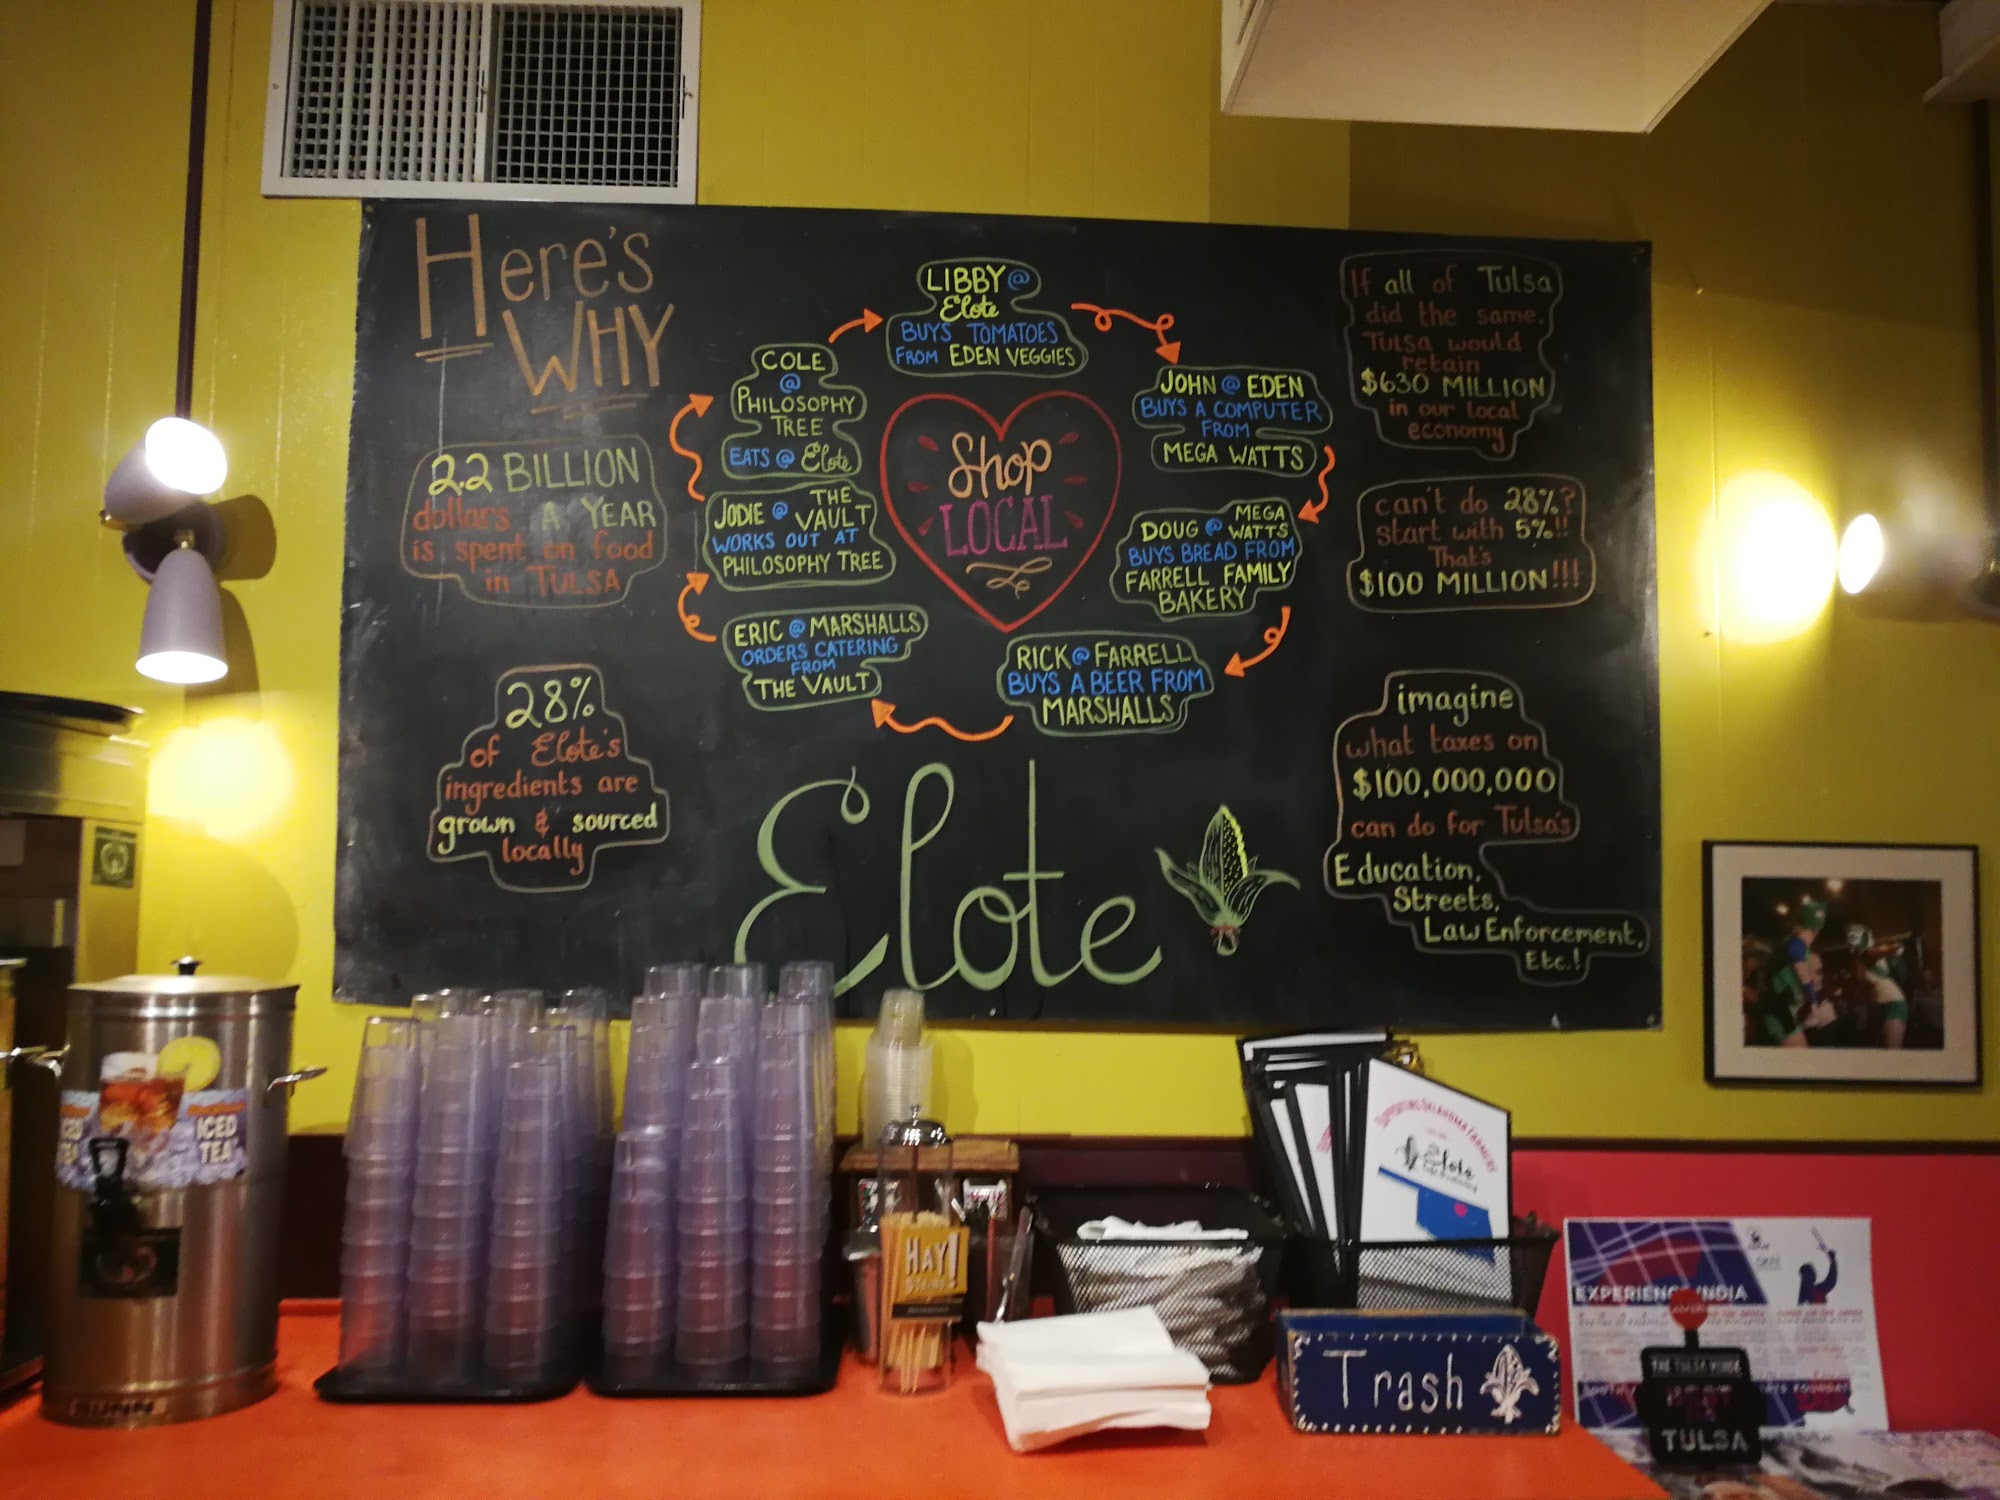 Here's
WHY
2.2 BILLION
dollars A YEAR
is spent on food
in TULSA
28%
of Elote's
ingredients are
grown & sourced
locally
LIBBY @
Elote
BUYS TOMATOES
FROM EDEN VEGGIES
JOHN @ EDEN
BUYS A COMPUTER
FROM
MEGA WATTS
MEGA
DOUG @ WATTS
BUYS BREAD FROM
FARRELL FAMILY
BAKERY
RICK @ FARRELL
BUYS A BEER FROM
MARSHALLS
ERIC @ MARSHALLS
ORDERS CATERING
FROM
THE VAULT
THE
JODIE @ VAULT
WORKS OUT AT
PHILOSOPHY TREE
COLE
@
PHILOSOPHY
TREE
EATS @ Elote
Shop
LOCAL
Elote
If all of Tulsa
did the same,
Tulsa would
retain
$630 MILLION
in our local
economy
can't do 28%?
start with 5%!!
That's
$100 MILLION!!!
imagine
what taxes on
$100,000,000
can do for Tulsa's
Education,
Streets,
Law Enforcement,
Etc.!
ICED
TEA
HAY!
SUPPORTING OKLAHOMA FARMERS
Elote
Trash
EXPERIENCE INDIA
THE TULSA VOICE
TULSA